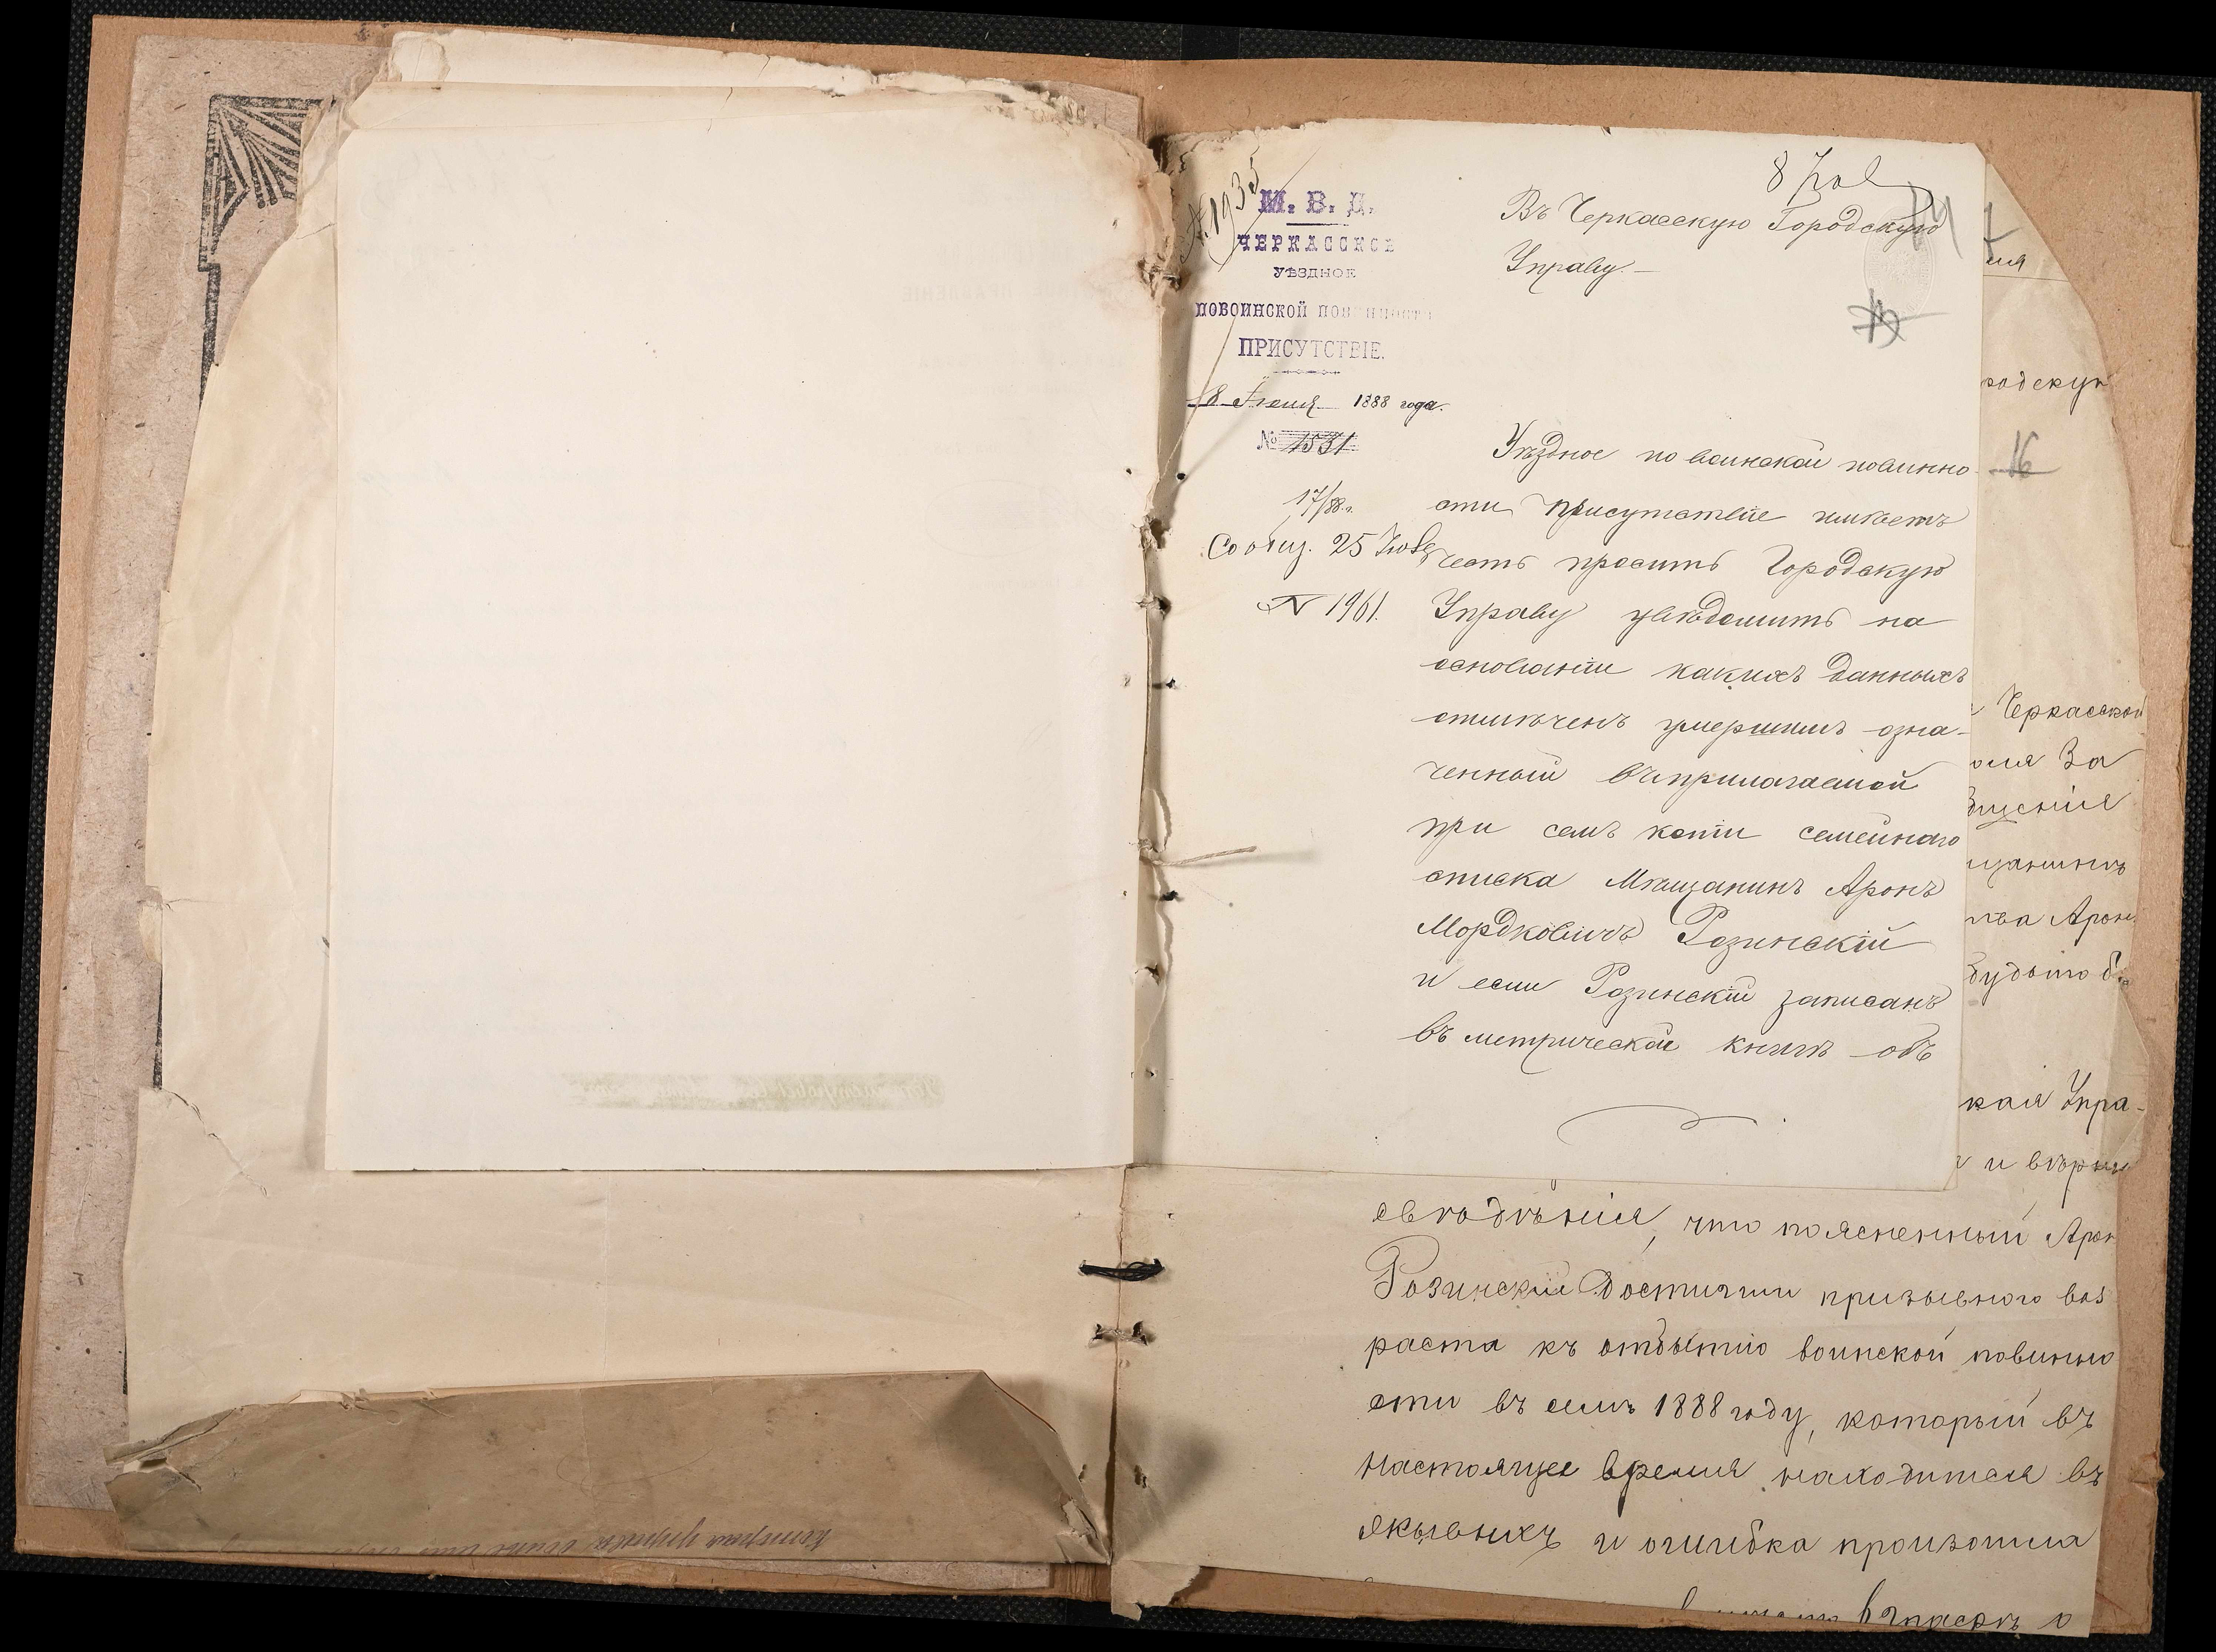 № 1935
М. В. Д.
ЧЕРКАССКОЕ
УѢЗДНОЕ
ПОВОИНСКОЙ ПОВИННОСТИ
ПРИСУТСТВІЕ.
8 Іюня 1888 года.
№ 1531
17/88 г.
Сообщ. 25 Іюня
№ 1961.
Въ Черкасскую Городскую
Управу.—
Уѣздное по воинской повинно-
сти присутствіе имѣетъ
честь просить Городскую
Управу увѣдомить на
основаніи какихъ данныхъ
отмѣченъ умершимъ озна-
ченный въ прилагаемой
при семъ копіи семейнаго
списка Мѣщанинъ Аронъ
Мордковичъ Розинскій
и если Розинскій записанъ
въ метрической книгѣ объ
родскую
16
Черкасской
За
Арон
кая Упра-
и вѣрны
свѣдѣнія, что поясненный Арон
Розинскій достигши призывного воз
раста къ отбытію воинской повинно
сти въ семъ 1888 году, который въ
настоящее время находится въ
и ошибка произошла